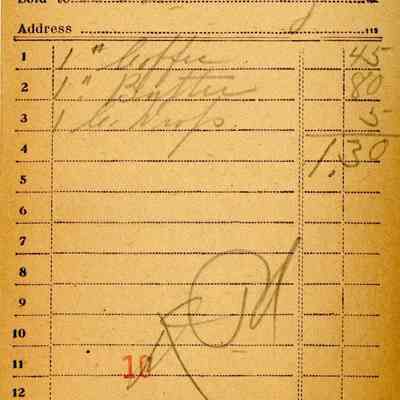 Sold to
Address
1 1 " Coffee 45
2 1 " Butter 80
3 1 C. Drops 5
4 1.30
5
6
7
8
9
10
11 10
12
Pd